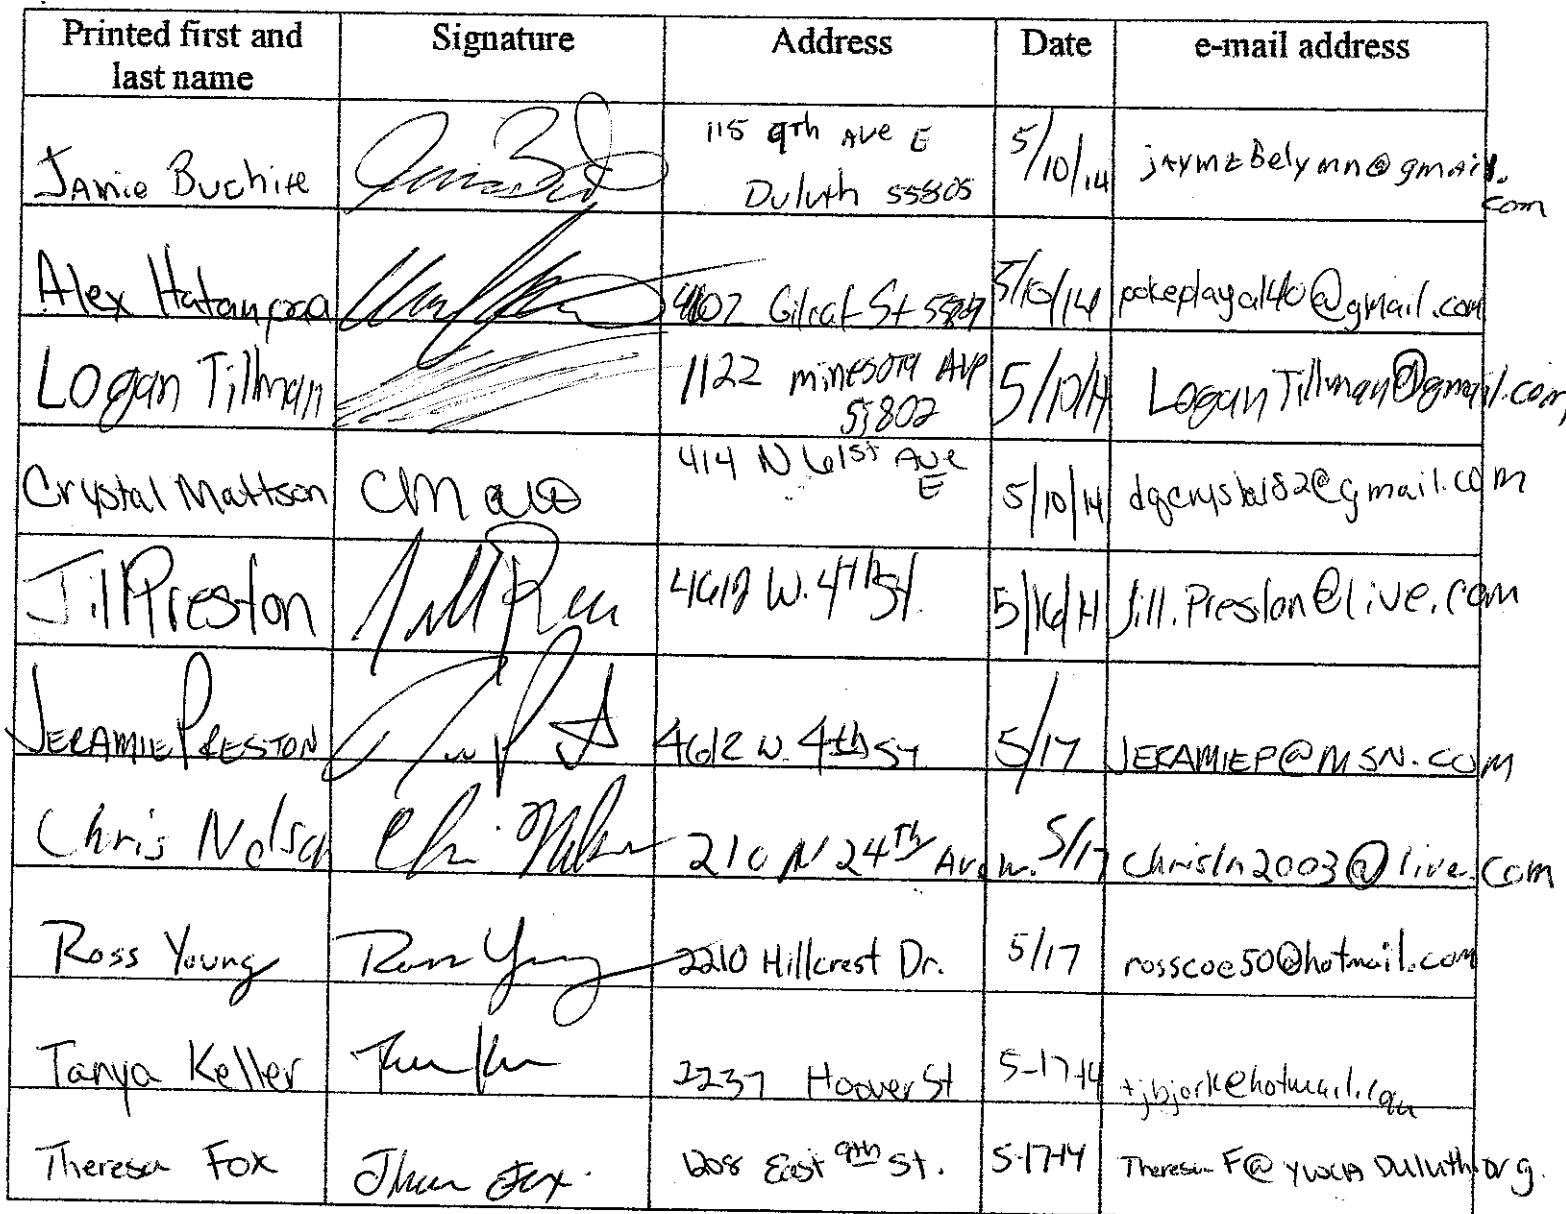 Printed first and last name Signature Address Date e-mail address
Jamie 115 9th Ave E Duluth 55805 5/10/14 jaymebelymn@gmail.com
Alex Gilcat St 5/10/14 pokeplaya140@gmail.com
Logan Tillman 1122 minesota Ave 55802 5/10/14 LoganTillman@gmail.com
Crystal Mattson 414 N 61st Ave E 5/10/14 dqcrystal82@gmail.com
Jill Preston 4612 W. 4th St. 5/16/14 Jill.Preston@live.com
JERAMIE PRESTON 4612 W. 4th ST 5/17 JERAMIEP@MSN.COM
Chris Nelson Chris Nelson 210 N 24Th Ave W. 5/17 Chrisln2003@live.com
Ross Young Ross Young 2210 Hillcrest Dr. 5/17 rosscoe50@hotmail.com
Tanya Keller 2237 Hoover St 5-17-14 tjbjork@hotmail.com
Theresa Fox Fox 1208 East 9th St. 5-17-14 TheresaF@ywcaDuluth.org